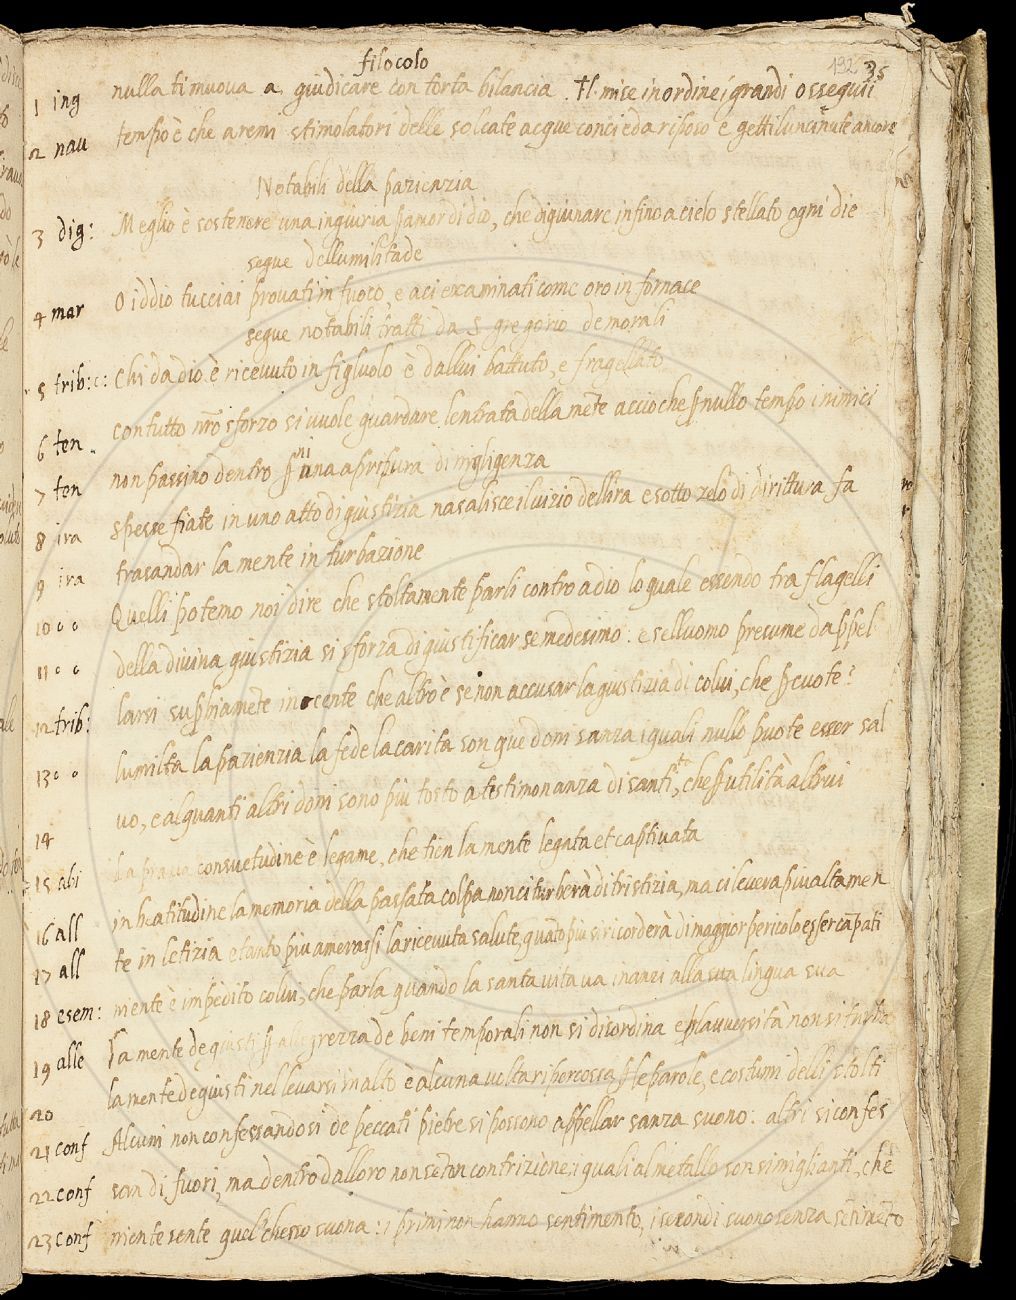 filocolo
192 35
1 ing nulla ti muova a giudicare con torta bilancia. Il mise in ordine i grandi osseguii
2 nau tempo è che a remi stimolatori delle solcate acque concieda riposo e getti l uncinute ancore
Notabili della pazienzia
3 dig: Meglio è sostenere una ingiuria p amor di dio, che digiunare infino a cielo stellato ogni die
segue dellumilitade
4 mar O iddio tu cci ai provati in fuoco, e acci examinati come oro in fornace
segue notabili tratti da S gregorio de morali
5 trib: c: Chi da dio è ricevuto in figluolo è dallui battuto, e fragellato
6 ten con tutto nr̃o sforzo si vuole guardare lentrata della mēte accio che p nullo tempo i nimici
7 ten non passino dentro p una apritura di nigligenza
8 ira spesse fiate in uno atto di giustizia nasalisce il vizio dellira e sotto zelo di dirittura fa
9 ira trasandar la mente in turbazione
10 c c Quelli potemo noi dire che stoltamente parli contro a dio lo quale essendo tra flagelli
11 c c della divina giustizia si sforza di giustificar se medesimo: e selluomo presume dappel
12 trib: larsi supbiamēte inocente che altro è se non accusar la giustizia di colui, che pcuote?
13 c c lumilta la pazienzia la fede la carita son que doni sanza i quali nullo puote esser sal
14 vo, e alquanti altri doni sono più tosto a testimonanza di santità, che p utilità altrui
15 abi La prava consuetudine è legame, che tien la mente legata et captivata
16 all in beatitudine la memoria della passata colpa non ci turberà di tristizia, ma ci leverà piu altamen
17 all te in letizia e tanto più amerassi la ricevuta salute, quāto più si ricorderà di maggior pericolo esser cāpati
18 esem: niente è impedito colui, che parla quando la santa vita va inanzi alla sua lingua sua
19 alle La mente de giusti p allegrezza de beni temporali non si disordina e p lavversità non si turba
20 la mente de giusti nel levarsi in alto è alcuna volta ripercossa p le parole, e costumi delli stolti
21 conf Alcuni non confessandosi de peccati pietre si possono appellar sanza suono: altri si confes
22 conf san di fuori, ma dentro dalloro non seton contrizione; i quali al metallo son simiglianti, che
23 conf niente sente quel chesso suona: i primi non hanno sentimento, i secondi suono senza sētimēto